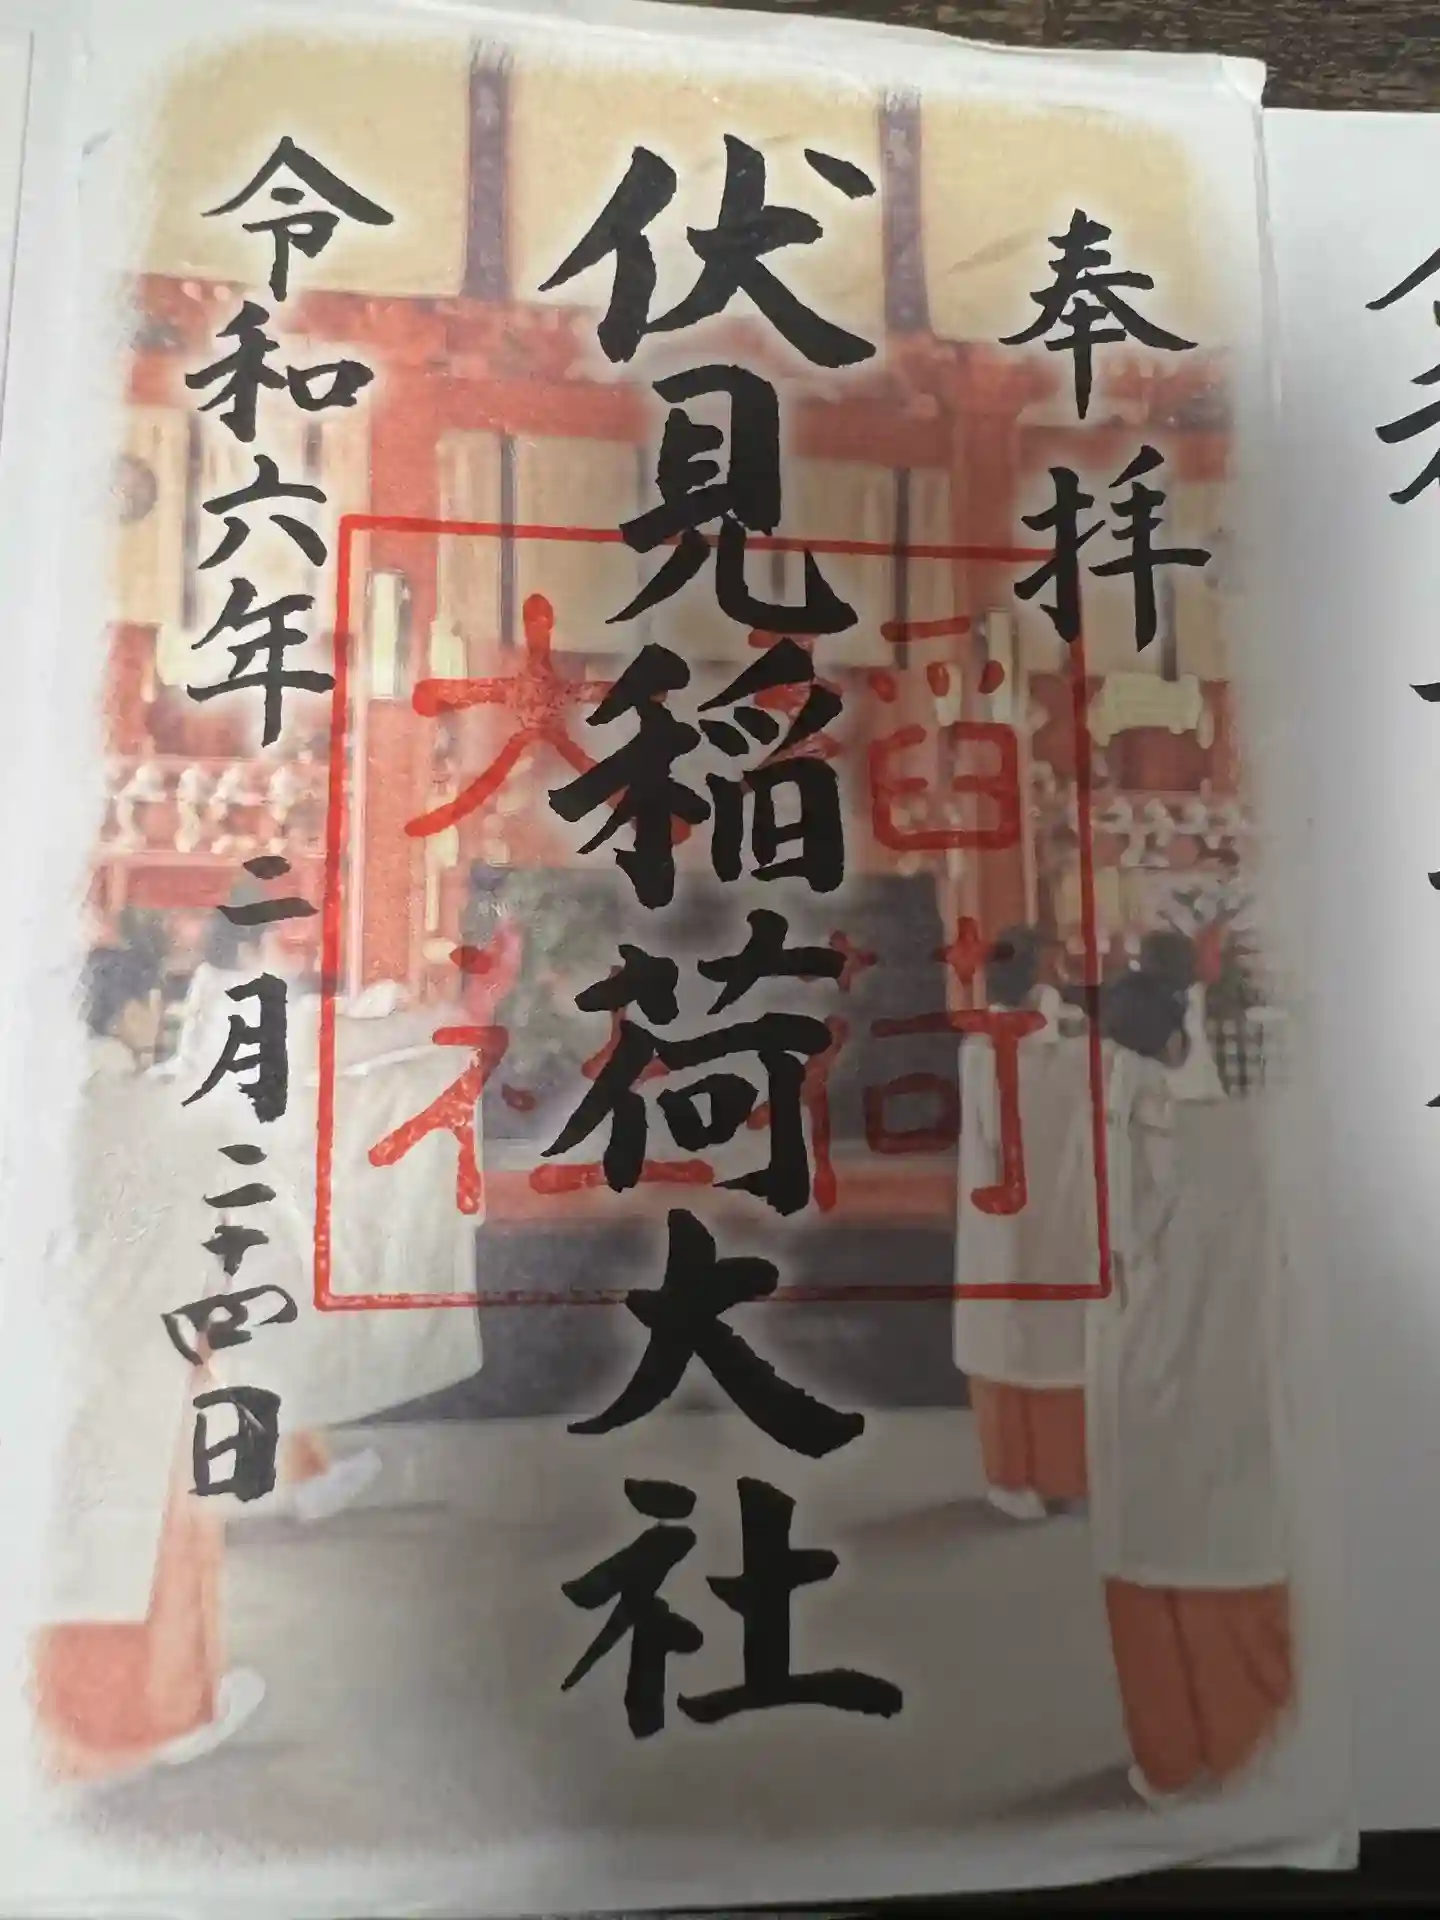 奉拝
伏見稲荷大社
稲荷
大社
令和六年 二月二十四日